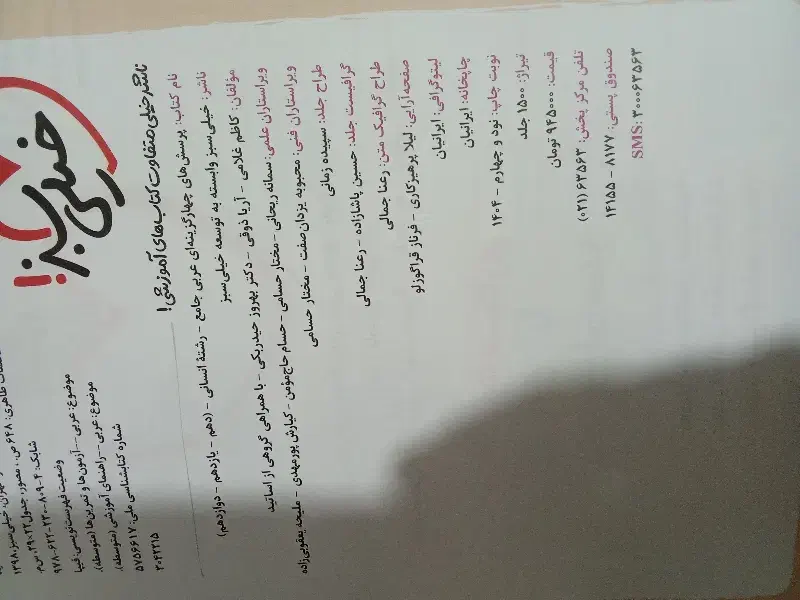 مشخصات ظاهری: ۶۴۸ ص.، مصور، جدول؛ ۲۲×۲۹ س‌م.
شابک: ۴-۸۰۹-۲۳۰-۶۲۲-۹۷۸
وضعیت فهرست‌نویسی: فیپا
موضوع: عربی--آزمون‌ها و تمرین‌ها (متوسطه)
موضوع: عربی--راهنمای آموزشی (متوسطه)
شماره کتابشناسی ملی: ۵۷۵۶۶۱۷
۳۰۴۲۲۱۵
خیلی سبز!
ناشر خیلی متفاوت کتاب‌های آموزشی!
نام کتاب: پرسش‌های چهارگزینه‌ای عربی جامع - رشتهٔ انسانی - (دهم - یازدهم - دوازدهم)
ناشر: خیلی سبز وابسته به توسعه خیلی سبز
مؤلفان: کاظم غلامی - آریا ذوقی - دکتر بهروز حیدربکی - با همراهی گروهی از اساتید
ویراستاران علمی: سمانه ریحانی - مختار حسامی - حسام حاج‌مؤمن - کیارش پورمهدی - ملیحه یعقوبی‌زاده
ویراستاران فنی: محبوبه یزدان‌صفت - مختار حسامی
طراح جلد: سپیده زمانی
گرافیست جلد: حسین پاشازاده - رعنا جمالی
طراح گرافیک متن: رعنا جمالی
صفحه‌آرایی: لیلا پرهیزکاری - فرناز قراگوزلو
لیتوگرافی: ایرانیان
چاپخانه: ایرانیان
نوبت چاپ: نود و چهارم - ۱۴۰۴
تیراژ: ۱۵۰۰ جلد
قیمت: ۹۴۵۰۰۰ تومان
تلفن مرکز پخش: ۶۳۵۶۳ (۰۲۱)
صندوق پستی: ۸۱۷۷ - ۱۴۱۵۵
SMS: ۳۰۰۰۶۳۵۶۳